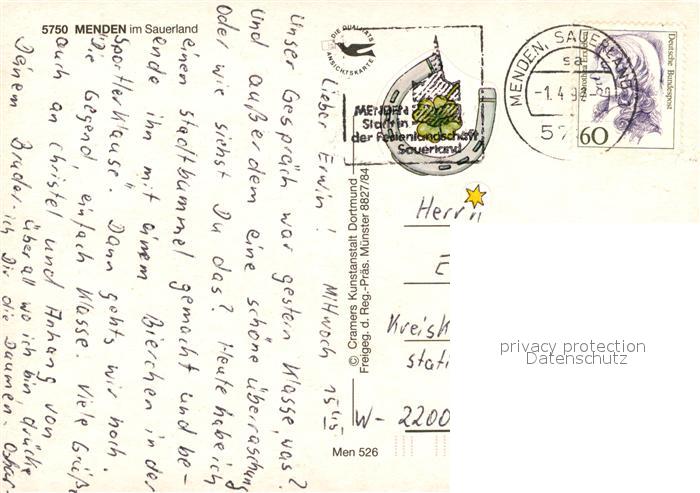 5750 MENDEN im Sauerland
DIE QUALITÄTS
ANSICHTSKARTE
Lieber Erwin! Mittwoch 15 Uhr
Unser Gespräch war gestern Klasse, was?
Und außerdem eine schöne Überraschung
oder wie siehst Du das? Heute habe ich
einen Stadtbummel gemacht und be-
ende ihn mit einem Bierchen in der
Sportlerklause. Dann gehts wir noch.
Die Gegend, einfach Klasse. Viele Grüße
auch an Christel und Anhang von
Deinem Bruder. Überall wo ich bin, drücke
ich Dir die Daumen. Oskar.
© Cramers Kunstanstalt Dortmund
Freigeg. d. Reg.-Präs. Münster 8827/84
Men 526
MENDEN
Stadt in
der Ferienlandschaft
Sauerland
MENDEN, SAUERLAND
-1.4.9
Deutsche Bundespost
60
Herrn
E
Kreisk
stati
W- 2200
privacy protection
Datenschutz